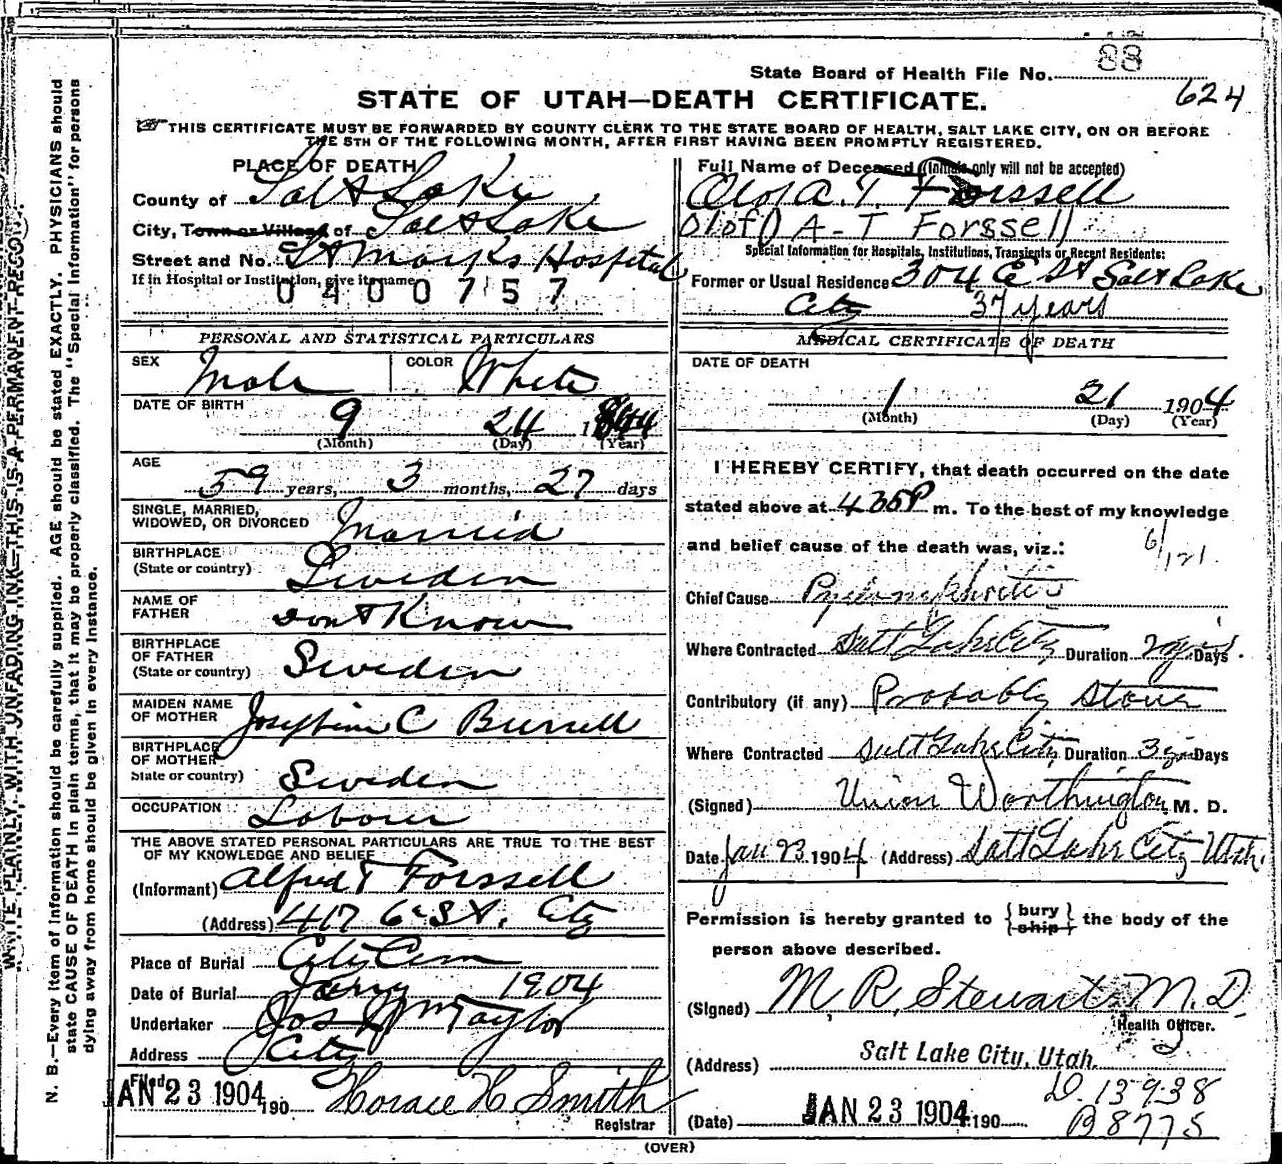 88
State Board of Health File No.
624
STATE OF UTAH—DEATH CERTIFICATE.
THIS CERTIFICATE MUST BE FORWARDED BY COUNTY CLERK TO THE STATE BOARD OF HEALTH, SALT LAKE CITY, ON OR BEFORE
THE 5TH OF THE FOLLOWING MONTH, AFTER FIRST HAVING BEEN PROMPTLY REGISTERED.
WRITE PLAINLY, WITH UNFADING INK—THIS IS A PERMANENT RECORD.
N. B.—Every item of information should be carefully supplied. AGE should be stated EXACTLY. PHYSICIANS should
state CAUSE OF DEATH in plain terms, that it may be properly classified. The "Special Information" for persons
dying away from home should be given in every instance.
PLACE OF DEATH
County of Salt Lake
City, Town or Village of Salt Lake
Street and No. St Marks Hospital
If in Hospital or Institution, give its name
0400757
PERSONAL AND STATISTICAL PARTICULARS
SEX Male COLOR White
DATE OF BIRTH
9 24 1844
(Month) (Day) (Year)
AGE
59 years, 3 months, 27 days
SINGLE, MARRIED,
WIDOWED, OR DIVORCED Married
BIRTHPLACE
(State or country) Sweden
NAME OF
FATHER dont Know
BIRTHPLACE
OF FATHER
(State or country) Sweden
MAIDEN NAME
OF MOTHER Josephine C Burrell
BIRTHPLACE
OF MOTHER
State or country) Sweden
OCCUPATION Laborer
THE ABOVE STATED PERSONAL PARTICULARS ARE TRUE TO THE BEST
OF MY KNOWLEDGE AND BELIEF
(Informant) Alfred T Forssell
(Address) 417 6 St. City
Place of Burial City Cem
Date of Burial 1904
Undertaker Jos Wm Taylor
Address City
Filed JAN 23 1904 190 Horace H Smith
Registrar
Full Name of Deceased (Initials only will not be accepted)
Olof A. T. Forssell
Olof A-T Forssell
Special Information for Hospitals, Institutions, Transients or Recent Residents:
Former or Usual Residence 304 E St Salt Lake
City 37 years
MEDICAL CERTIFICATE OF DEATH
DATE OF DEATH
1 21 1904
(Month) (Day) (Year)
I HEREBY CERTIFY, that death occurred on the date
stated above at 4 35 P m. To the best of my knowledge
and belief cause of the death was, viz.:
6/121.
Chief Cause Pyelonephritis
Where Contracted Salt Lake City Duration Days
Contributory (if any) Probably Stone
Where Contracted Salt Lake City Duration Days
(Signed) Union Worthington, M. D.
Date Jan 23 1904 (Address) Salt Lake City Utah.
Permission is hereby granted to {bury
ship} the body of the
person above described.
(Signed) M. R. Stewart M. D.
Health Officer.
(Address) Salt Lake City, Utah.
D. 13938
(Date) JAN 23 1904 190
B 8775
(OVER)